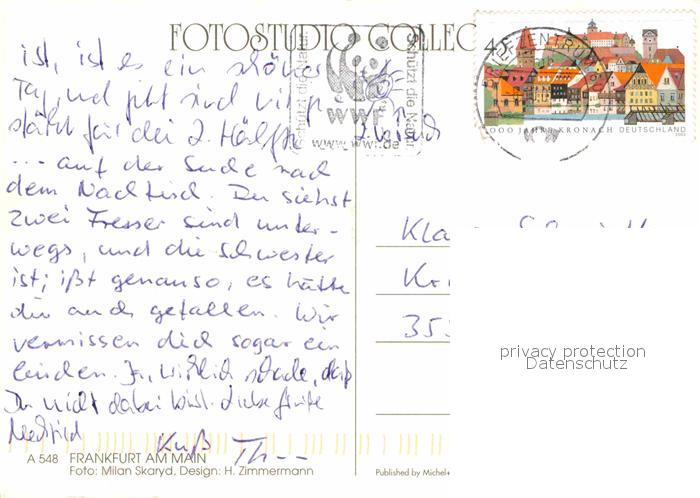 FOTOSTUDIO COLLEC
ist, ist es ein schöner
Tag, und jetzt sind wir
für die 2. Hälfte
... auf der Suche nach
dem Nachtisch. Du siehst
zwei Fresser sind unter-
wegs, und die Schwester
ist; ißt genauso, es hätte
dir auch gefallen. Wir
vermissen dich sogar ein
bißchen. Ja, wirklich schade, daß
Du nicht dabei bist. Liebe Grüße
Mechtild
Kuß Th--
A 548 FRANKFURT AM MAIN
Foto: Milan Skaryd, Design: H. Zimmermann
Schützt die Natur
WWF
www.wwf.de
Schützt die Natur
BRIEFZENTRUM
45
1000 JAHRE KRONACH DEUTSCHLAND
2003
Kla
Kr
35
privacy protection
Datenschutz
Published by Michel+